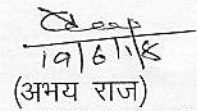 19/6/18
(अभय राज)